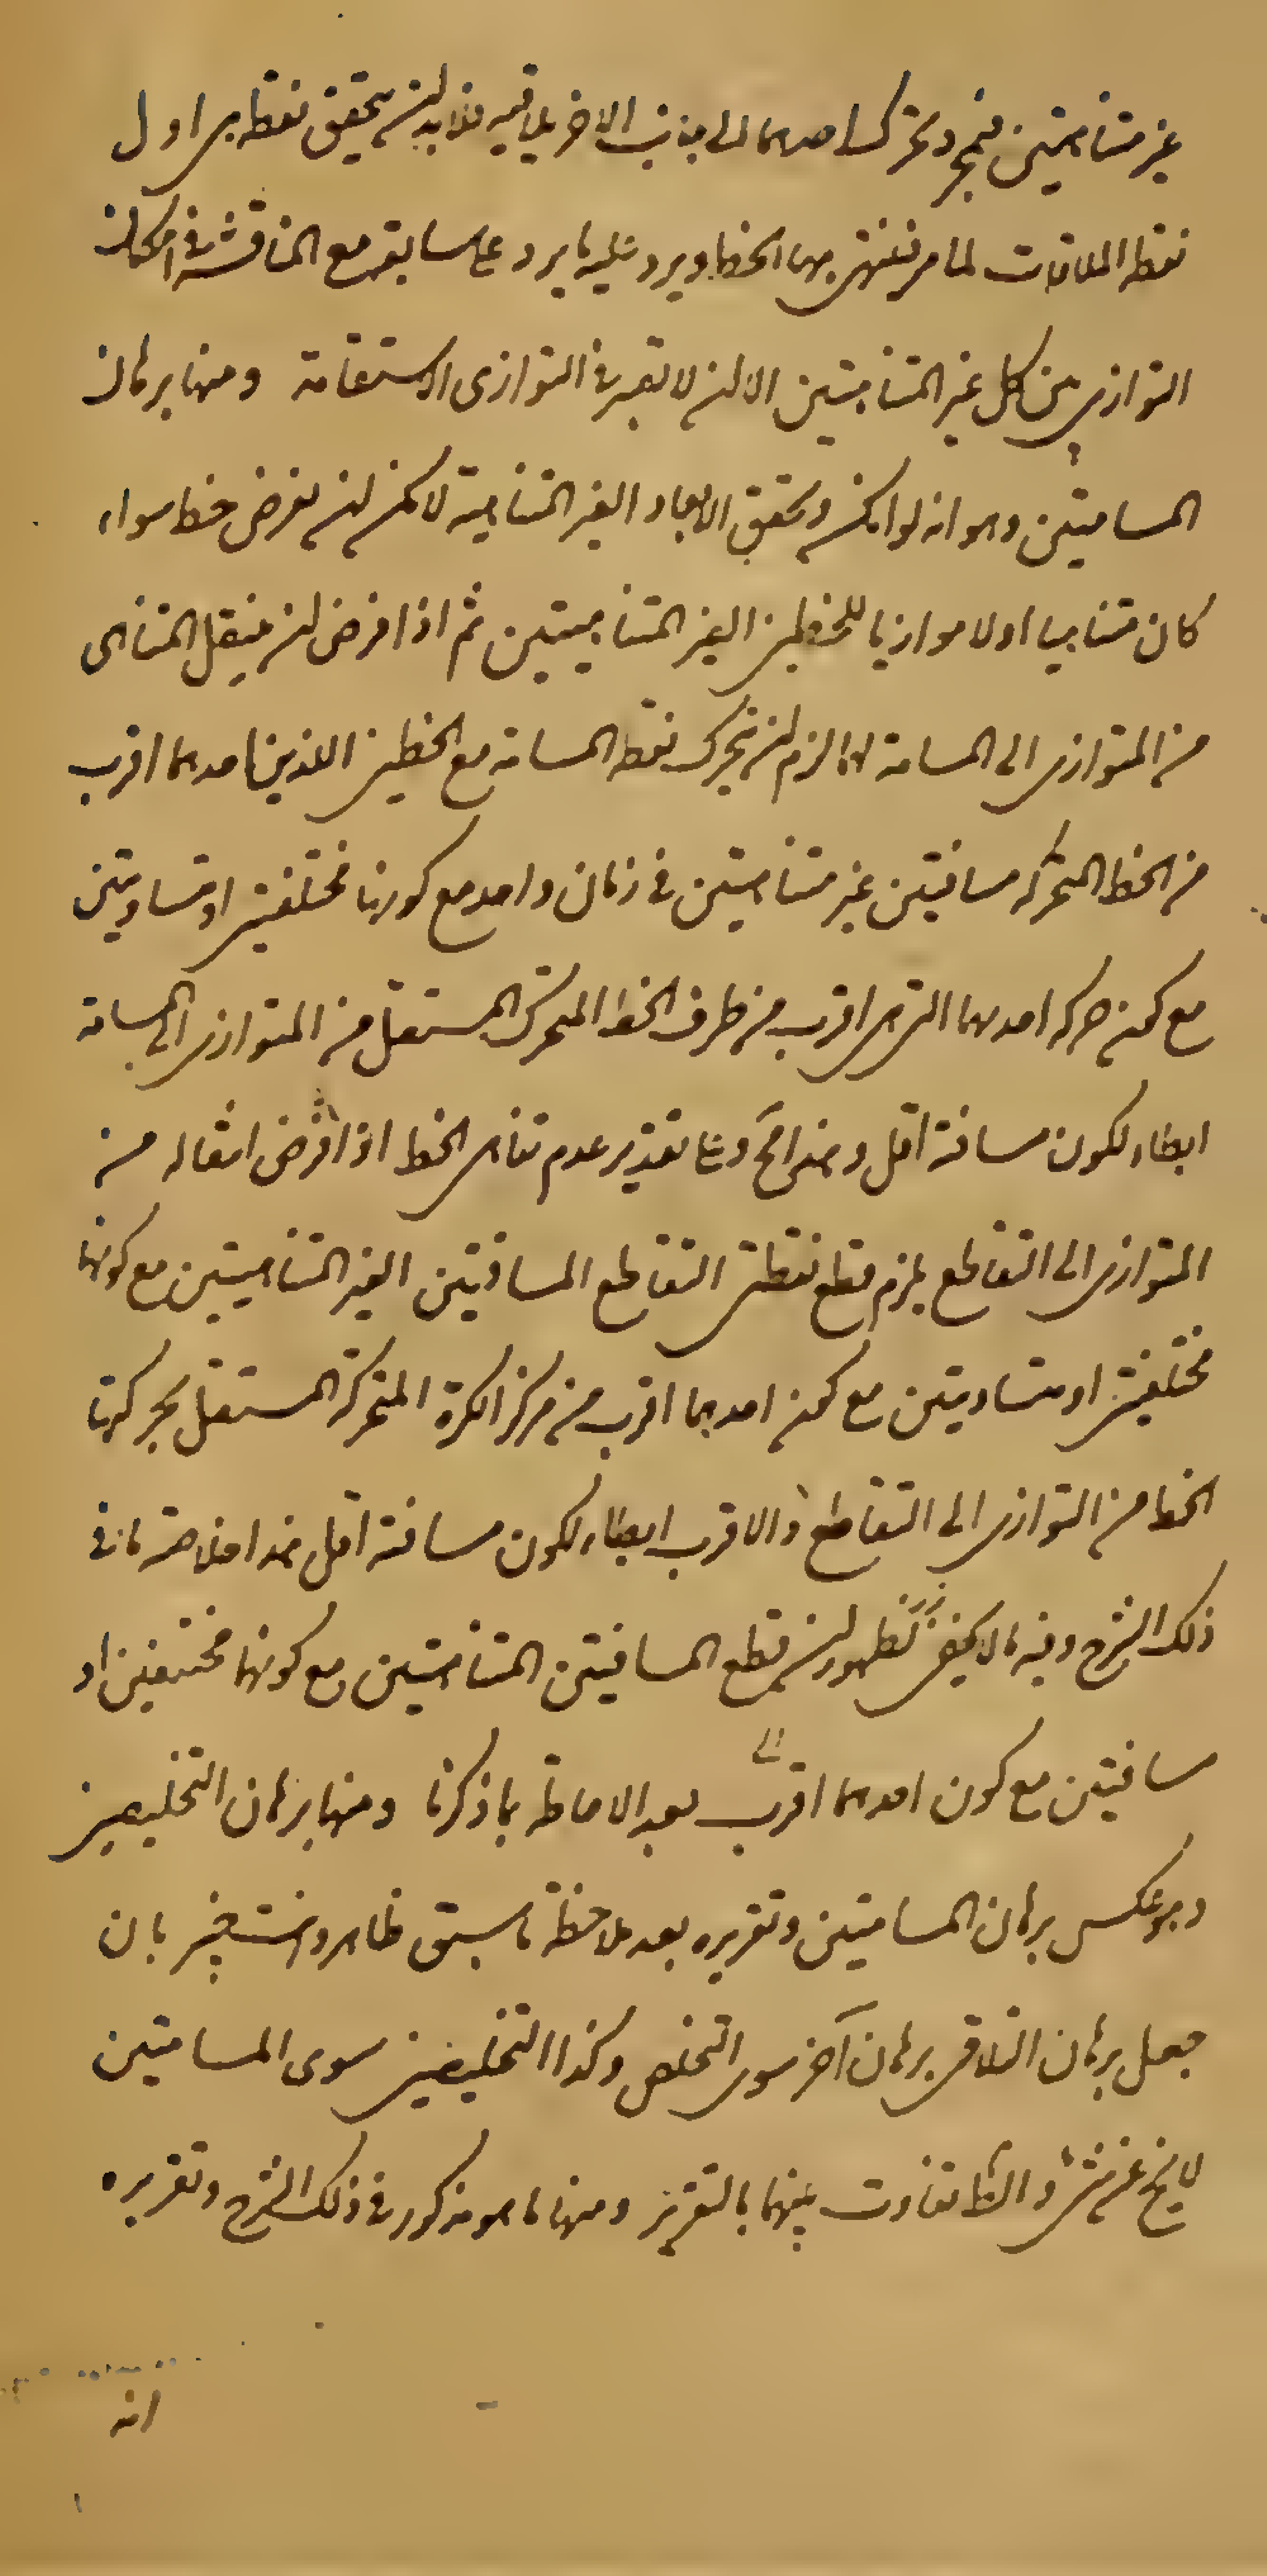 غير متناهيتين فبمجرد تحرك احدهما الى جانب الاخر يلاقيه فلا بد ان يتحقق نقطه هى اول
نقطه الملاقات لما مر فينتهى بها الخطا ويرد عليه ما يرد على سابقه مع المناقشة فى امكان
التوازى بين كل غير المتناهيتين الا ان لا تعتبر فى التوازى الاستقامة ومنها برهان
المسامتين وهو انه لو امكن وتحقق الابعاد الغير المتناهية لامكن ان نفرض خطا سواء
كان متناهيا اولا موازيا للخطين الغير المتناهيتين ثم اذا فرض ان ينتقل المتناهى
من المتوازى الى المسامتة لهما لزم ان يتحرك نقطه المسامتة مع الخطين اللذين احدهما اقرب
من الخط المتحركه مسافتين غير متناهيتين فى زمان واحد مع كونها مختلفتين او متساويتين
مع كون حركه احدهما التى هى اقرب من طرف الخط المتحرك المستقل من المتوازى الى المسامتة
ابطاء لكون مسافة اقل وهذا مح وعلى تقدير عدم تناهى الخط اذا فرض انتقاله من
المتوازى الى التقاطع يلزم قطع نقطتى التقاطع المسافتين الغير المتناهيتين مع كونهما
مختلفتين او متساويتين مع كون احدهما اقرب من مركز الكرة المتحركة المستقل بحركتها
الخط من التوازى الى التقاطع والاقرب ابطاء لكون مسافة اقل هذا خلاصة ما فى
ذلك الشرح وفيه ما لا يخفى لظهور ان قطع المسافتين المتناهيتين مع كونهما مختلفين او
مسافتين مع كون احدهما اقرب بعد الاحاطة بما ذكرنا ومنها برهان التخليصين
وهو عكس برهان المسامتين وتقريره بعد ملاحظة ما سبق ظاهر وانت خبير بان
جعل برهان التلاقى برهان آخر سوى التخلص وكذا التخليصين سوى المسامتين
لا يخ عن شئ والظ تفاوت بينهما بالتقرير ومنها ما هو مذكور فى ذلك الشرح وتقريره
انه